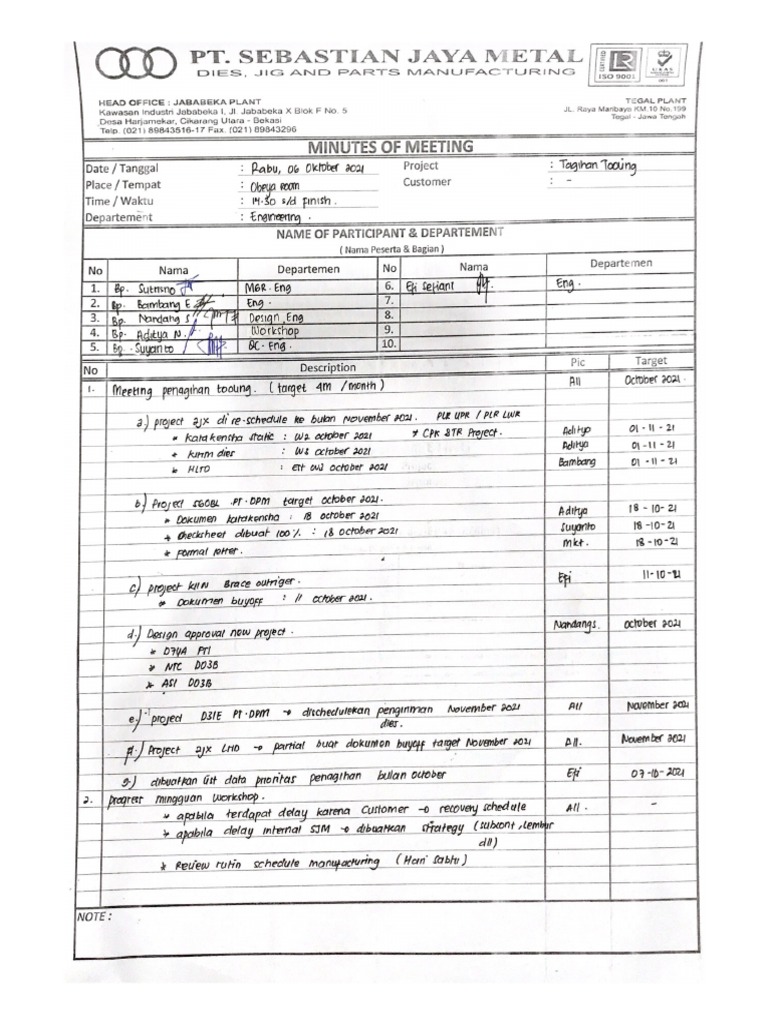 PT. SEBASTIAN JAYA METAL
DIES, JIG AND PARTS MANUFACTURING
CERTIFIED
LR
ISO 9001
UKAS
001
HEAD OFFICE : JABABEKA PLANT
Kawasan Industri Jababeka I, Jl. Jababeka X Blok F No. 5
Desa Harjamekar, Cikarang Utara - Bekasi
Telp. (021) 89843516-17 Fax. (021) 89843296
TEGAL PLANT
JL. Raya Maribaya KM.10 No.199
Tegal - Jawa Tengah
MINUTES OF MEETING
Date / Tanggal : Rabu, 06 Oktober 2021 Project : Tagihan Tooling
Place / Tempat : Obeya room Customer : -
Time / Waktu : 14.30 s/d finish.
Departement : Engineering.
NAME OF PARTICIPANT & DEPARTEMENT
( Nama Peserta & Bagian )
No Nama Departemen No Nama Departemen
1. Bp. Sutrisno MGR. Eng 6. Efi Setiani Eng.
2. Bp. Bambang E. Eng. 7.
3. Bp. Nandang S Design Eng 8.
4. Bp. Aditya N. Workshop 9.
5. Bp. Suyanto QC. Eng. 10.
No Description Pic Target
1. Meeting penagihan tooling. (target 4M /month) All October 2021.
a.) project 2JX di re-schedule ke bulan November 2021. PLR UPR / PLR LWR
* Katakensha static : W2 october 2021 * CPK STR Project. Aditya 01-11-21
* Kirim dies : W3 october 2021 Aditya 01-11-21
* HLTO : october 2021 Bambang 01-11-21
b.) Project 5G0BL PT.DPM target october 2021.
* Dokumen katakensha : 18 october 2021 Aditya 18-10-21
* Checksheet dibuat 100% : 18 october 2021 Suyanto 18-10-21
* Formal letter. mkt. 18-10-21
c.) project KIIN Brace outriger. Efi 11-10-21
* Dokumen buyoff : 11 october 2021.
d.) Design approval new project. Nandang s. october 2021
* D74A PTI
* NTC D03B
* ASI D03B
e.) project D31E PT.DPM → dischedulekan pengiriman November 2021 All November 2021
dies.
f.) Project 2JX LHD → partial buat dokumen buyoff target November 2021 All. November 2021
g.) dibuatkan list data prioritas penagihan bulan october Efi 07-10-2021
2. progress mingguan workshop. All. -
* apabila terdapat delay karena Customer → recovery schedule
* apabila delay internal SJM → dibuatkan strategy (subcont, lembur
dll)
* Review rutin schedule manufacturing (Hari sabtu)
NOTE :